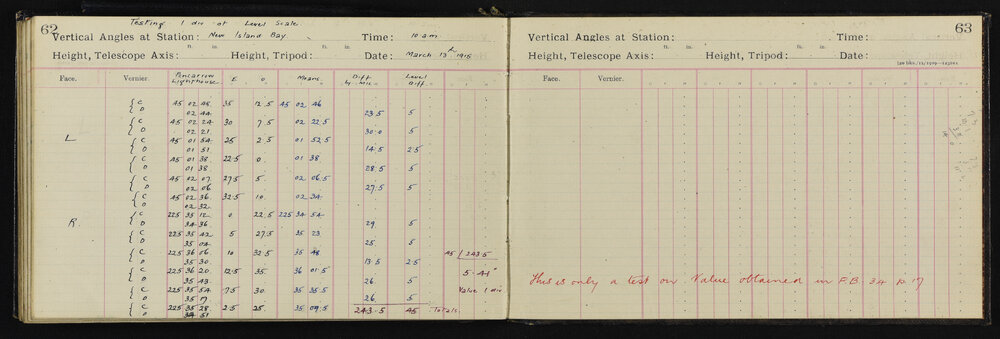 62
Testing 1 div of Level Scale
Vertical Angles at Station: New Island Bay. Time: 10 am
Height, Telescope Axis: ft. in. Height, Tripod: ft. in. Date: March 13th 1915
Face. Vernier. Pencarrow Lighthouse E O. Means Diff by mic. Level Diff.
C 45 02 48 35 12.5 45 02 46
D 02 44 23.5 5
C 45 02 24 30 7.5 02 22.5
D 02 21 30.0 5
L C 45 01 54 25 2.5 01 52.5
D 01 51 14.5 2.5
C 45 01 38 22.5 0. 01 38
D 01 38 28.5 5
C 45 02 07 27.5 5. 02 06.5
D 02 06 27.5 5
C 45 02 36 32.5 10 02 34
D 02 32
C 225 35 12 0 22.5 225 34 54
R. D 34 36 29 5
C 225 35 42 5 27.5 35 23
D 35 04 25 5
C 225 36 06 10 32.5 35 48 45 / 243.5
D 35 30 13.5 2.5
C 225 36 20 12.5 35 36 01.5 5.41"
D 35 43 26 5
C 225 35 54 7.5 30 35 35.5 Value 1 div
D 35 17 26 5
C 225 35 28 2.5 25. 35 09.5 243.5 45 Totals.
D 34 51
63
Vertical Angles at Station: Time:
Height, Telescope Axis: ft. in. Height, Tripod: ft. in. Date:
Face. Vernier.
This is only a test on Value obtained in F.B. 34 p 17